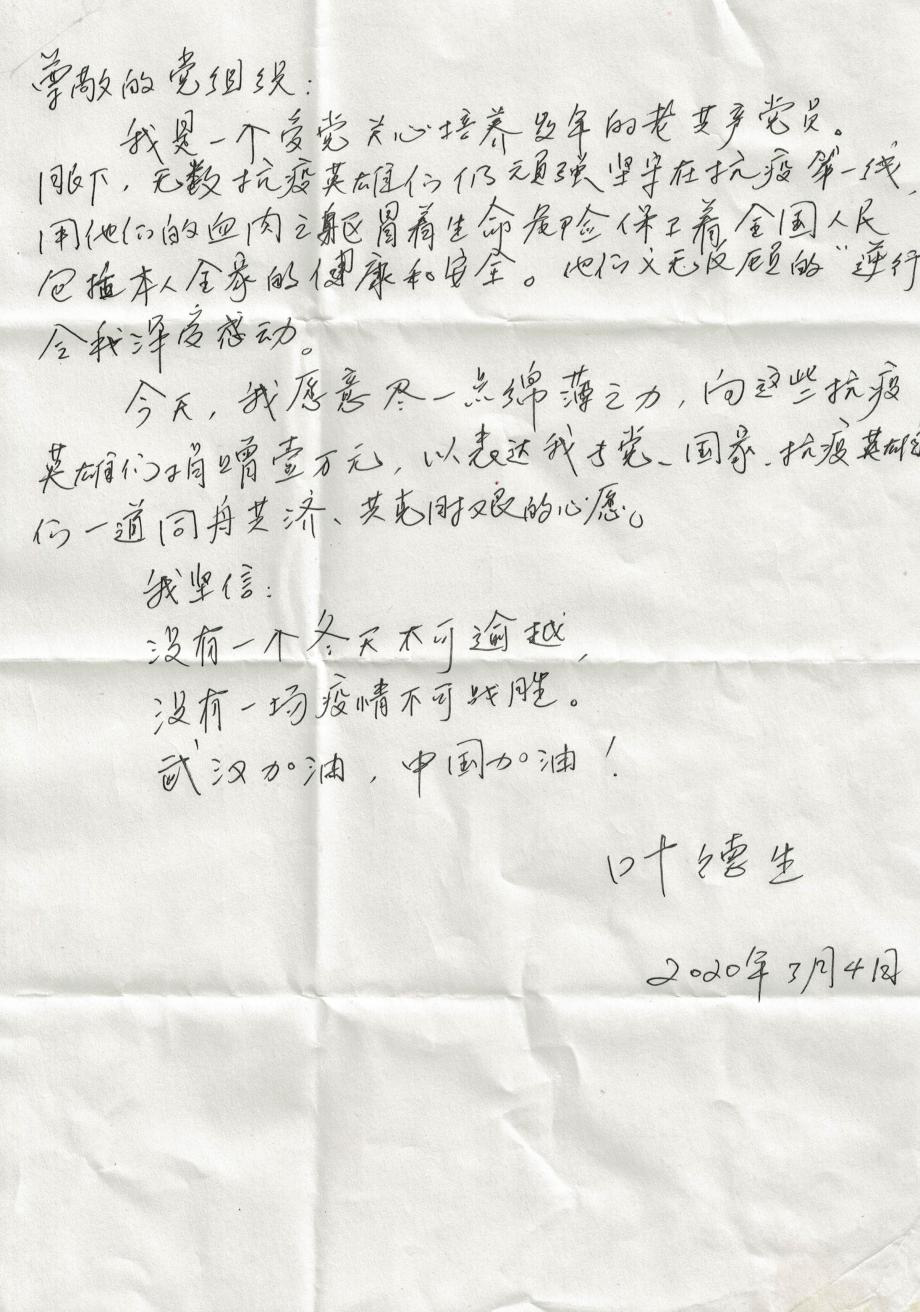 尊敬的党组织：
我是一个受党关心培养数年的老共产党员。
眼下，无数抗疫英雄们仍顽强坚守在抗疫第一线，
用他们的血肉之躯冒着生命危险保卫着全国人民
包括本人全家的健康和安全。他们义无反顾的“逆行
令我深度感动。
今天，我愿意尽一点绵薄之力，向这些抗疫
英雄们捐赠壹万元，以表达我与党、国家、抗疫英雄
们一道同舟共济、共克时艰的心愿。
我坚信：
没有一个冬天不可逾越，
没有一场疫情不可战胜。
武汉加油，中国加油！
叶德生
2020年3月4日